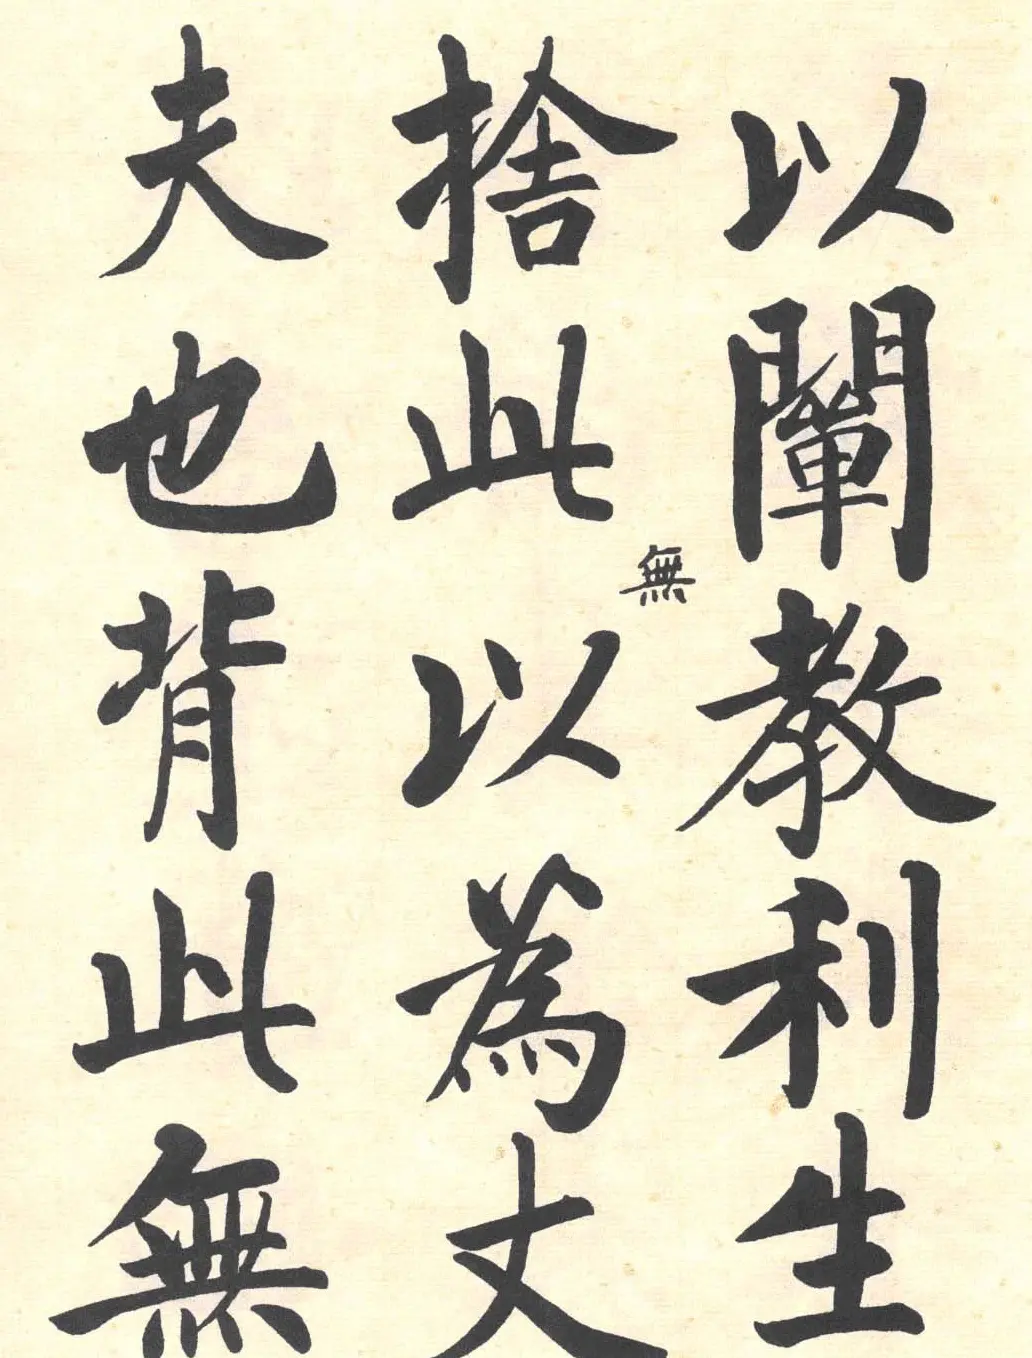 以闡教利生
捨此無以為丈
夫也背此無